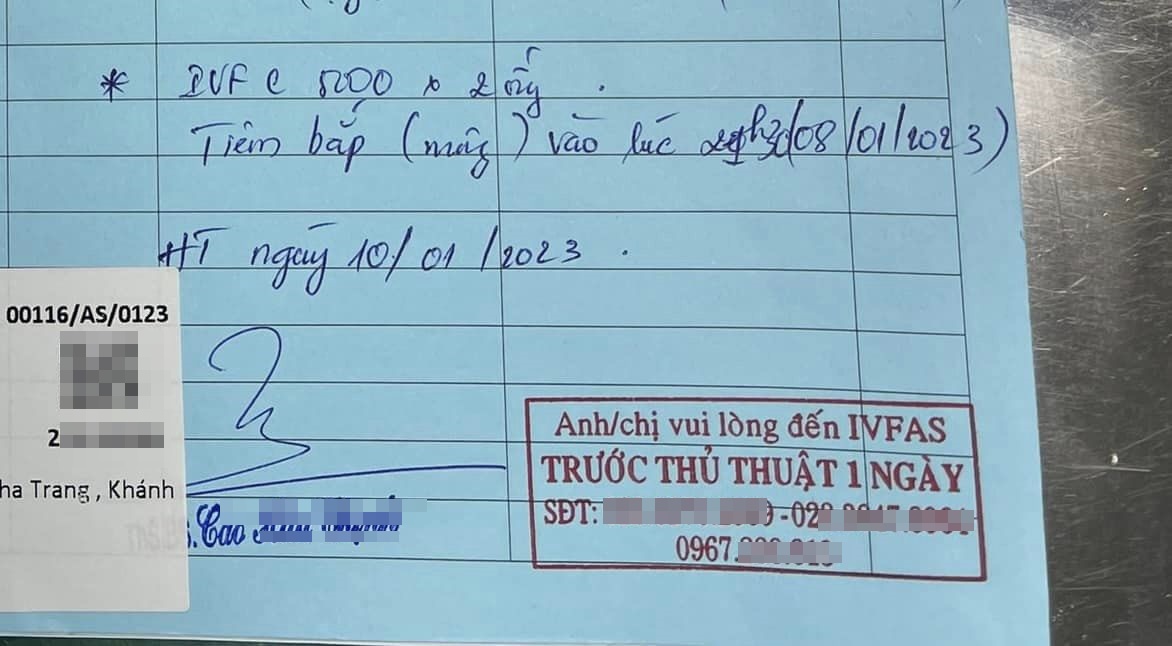 * IVF C 5000 x 2 ống.
Tiêm bắp (mông) vào lúc 08/01/2023)
HT ngày 10/01/2023.
00116/AS/0123
2
ha Trang , Khánh
.Cao
Anh/chị vui lòng đến IVFAS
TRƯỚC THỦ THUẬT 1 NGÀY
SĐT: -02
0967.